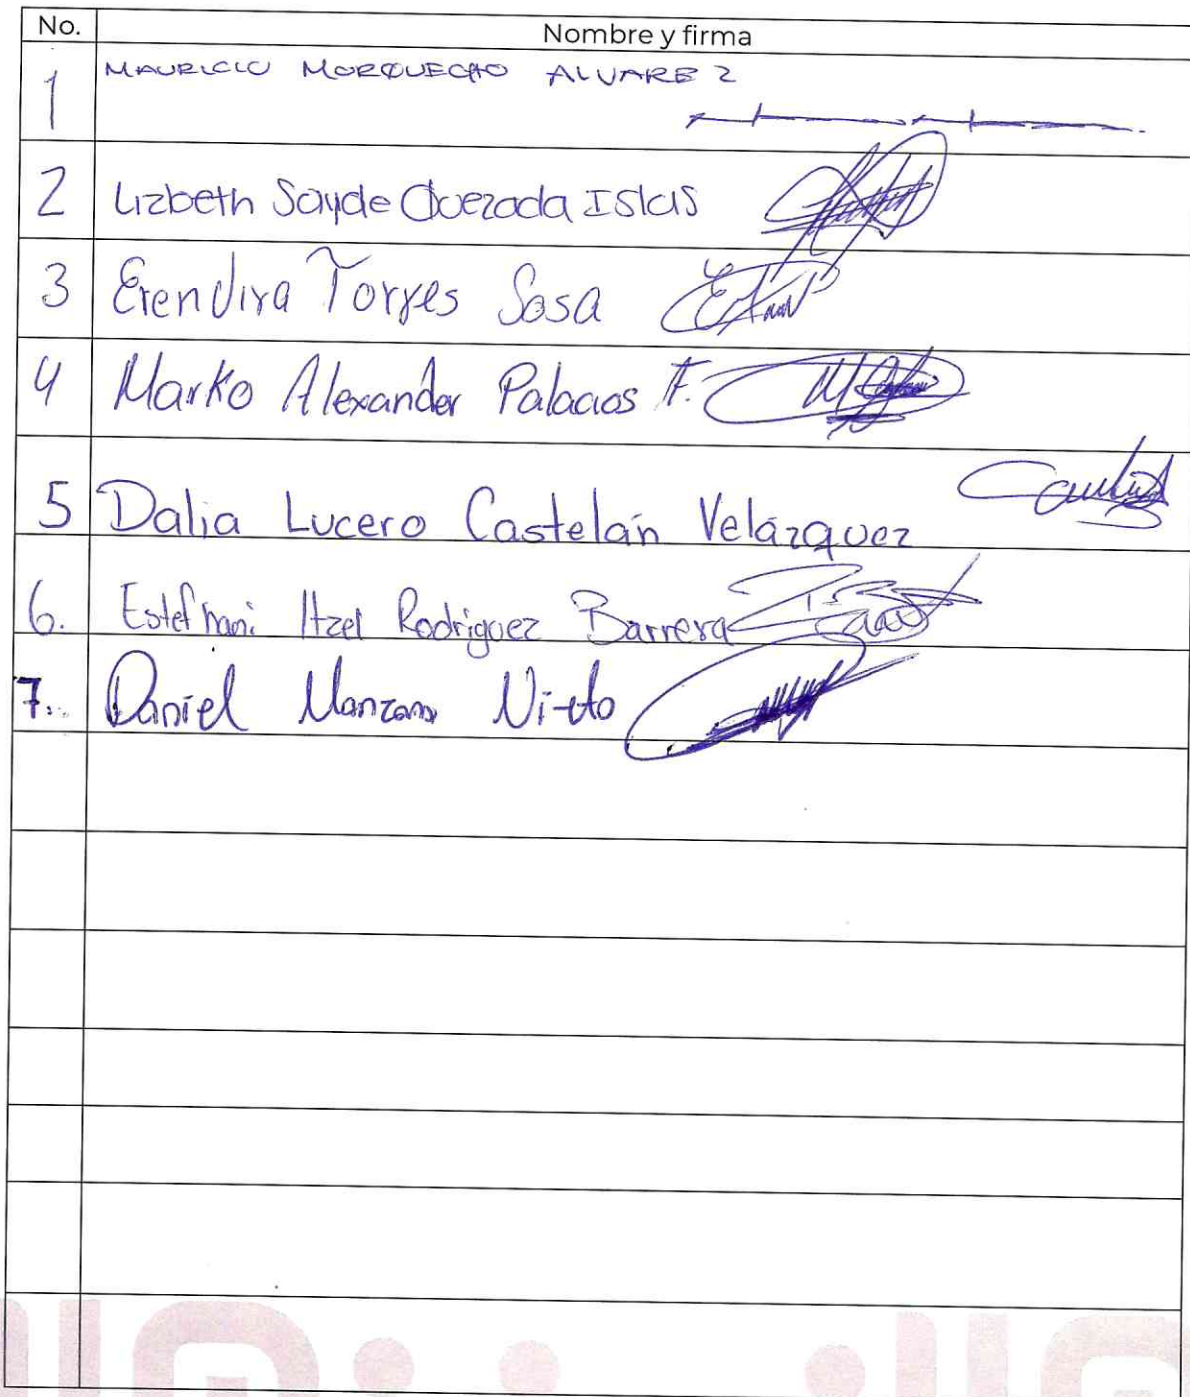 No. Nombre y firma
1 MAURICIO MORQUECHO ALVAREZ
2 Lizbeth Sayde Quezada Islas
3 Erendira Torres Sosa
4 Marko Alexander Palacios F.
5 Dalia Lucero Castelán Velázquez
6. Estefhani Itzel Rodriguez Barrera
7. Daniel Manzano Nieto